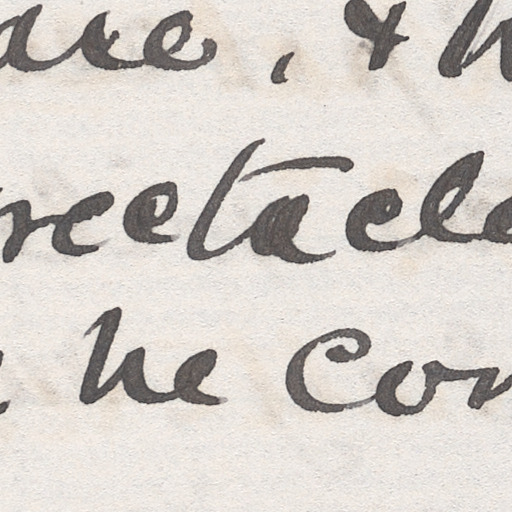 are, &
rectacle
he con